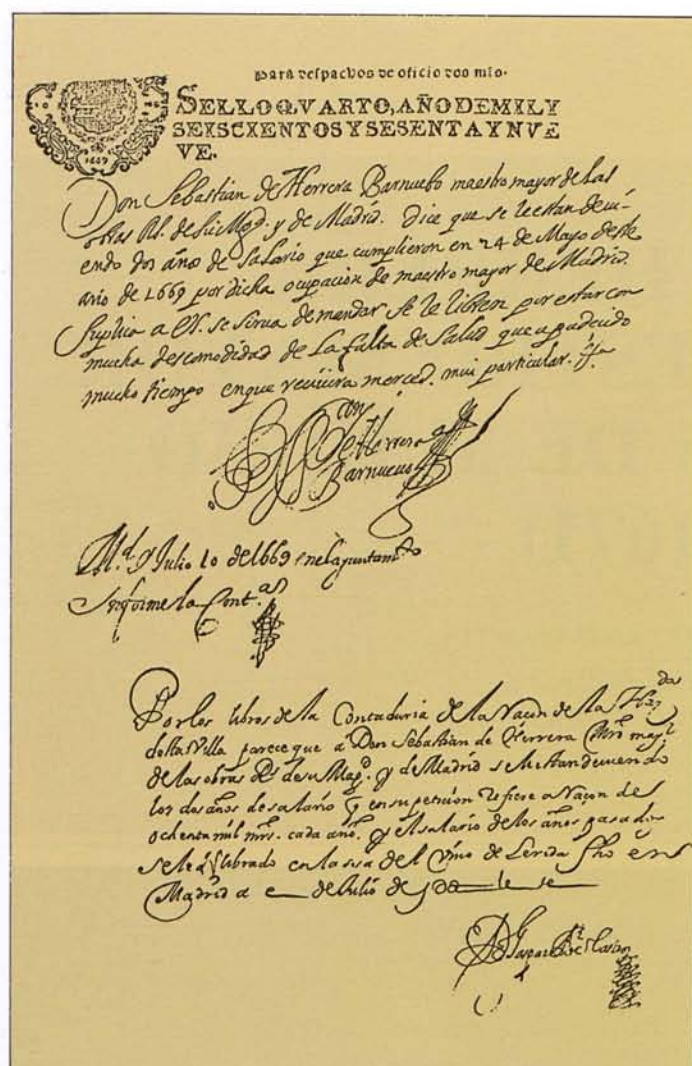 para despachos de oficio dos mrs.
SELLO QVARTO, AÑO DE MIL Y
SEISCIENTOS Y SESENTA Y NVE
VE.
1669
Don Sebastian de Herrera Barnuebo maestro mayor de las
obras Rs. de su Magd. y de Madrid. Dice que se le estan devi-
endo dos años de salario que cumplieron en 24 de Mayo deste
año de 1669 por dicha ocupacion de maestro mayor de Madrid.
Suplica a se sirva de mandar se le libren por estar con
mucha descomodidad de La falta de Salud que a padecido
mucho tiempo en que recivira merced. mui particular.
Don
de Herrera
Barnuevo
Md. y Julio 10 de 1669 en el ayuntamto
Informe la Conta
Por los libros de la Contaduria de la Raçon de la Hazda
desta Villa parece que a Don Sebastian de Herrera Mro mayr
de las obras Rs de su Magd. y de Madrid se le estan deviendo
los dos años de salario q en su peticion refiere a Raçon de
ochenta mil mrs. cada año. y el salario de los años pasados
se le a librado en la sisa del Vino de Lerida fho en
Madrid a de Julio de
Gaspar